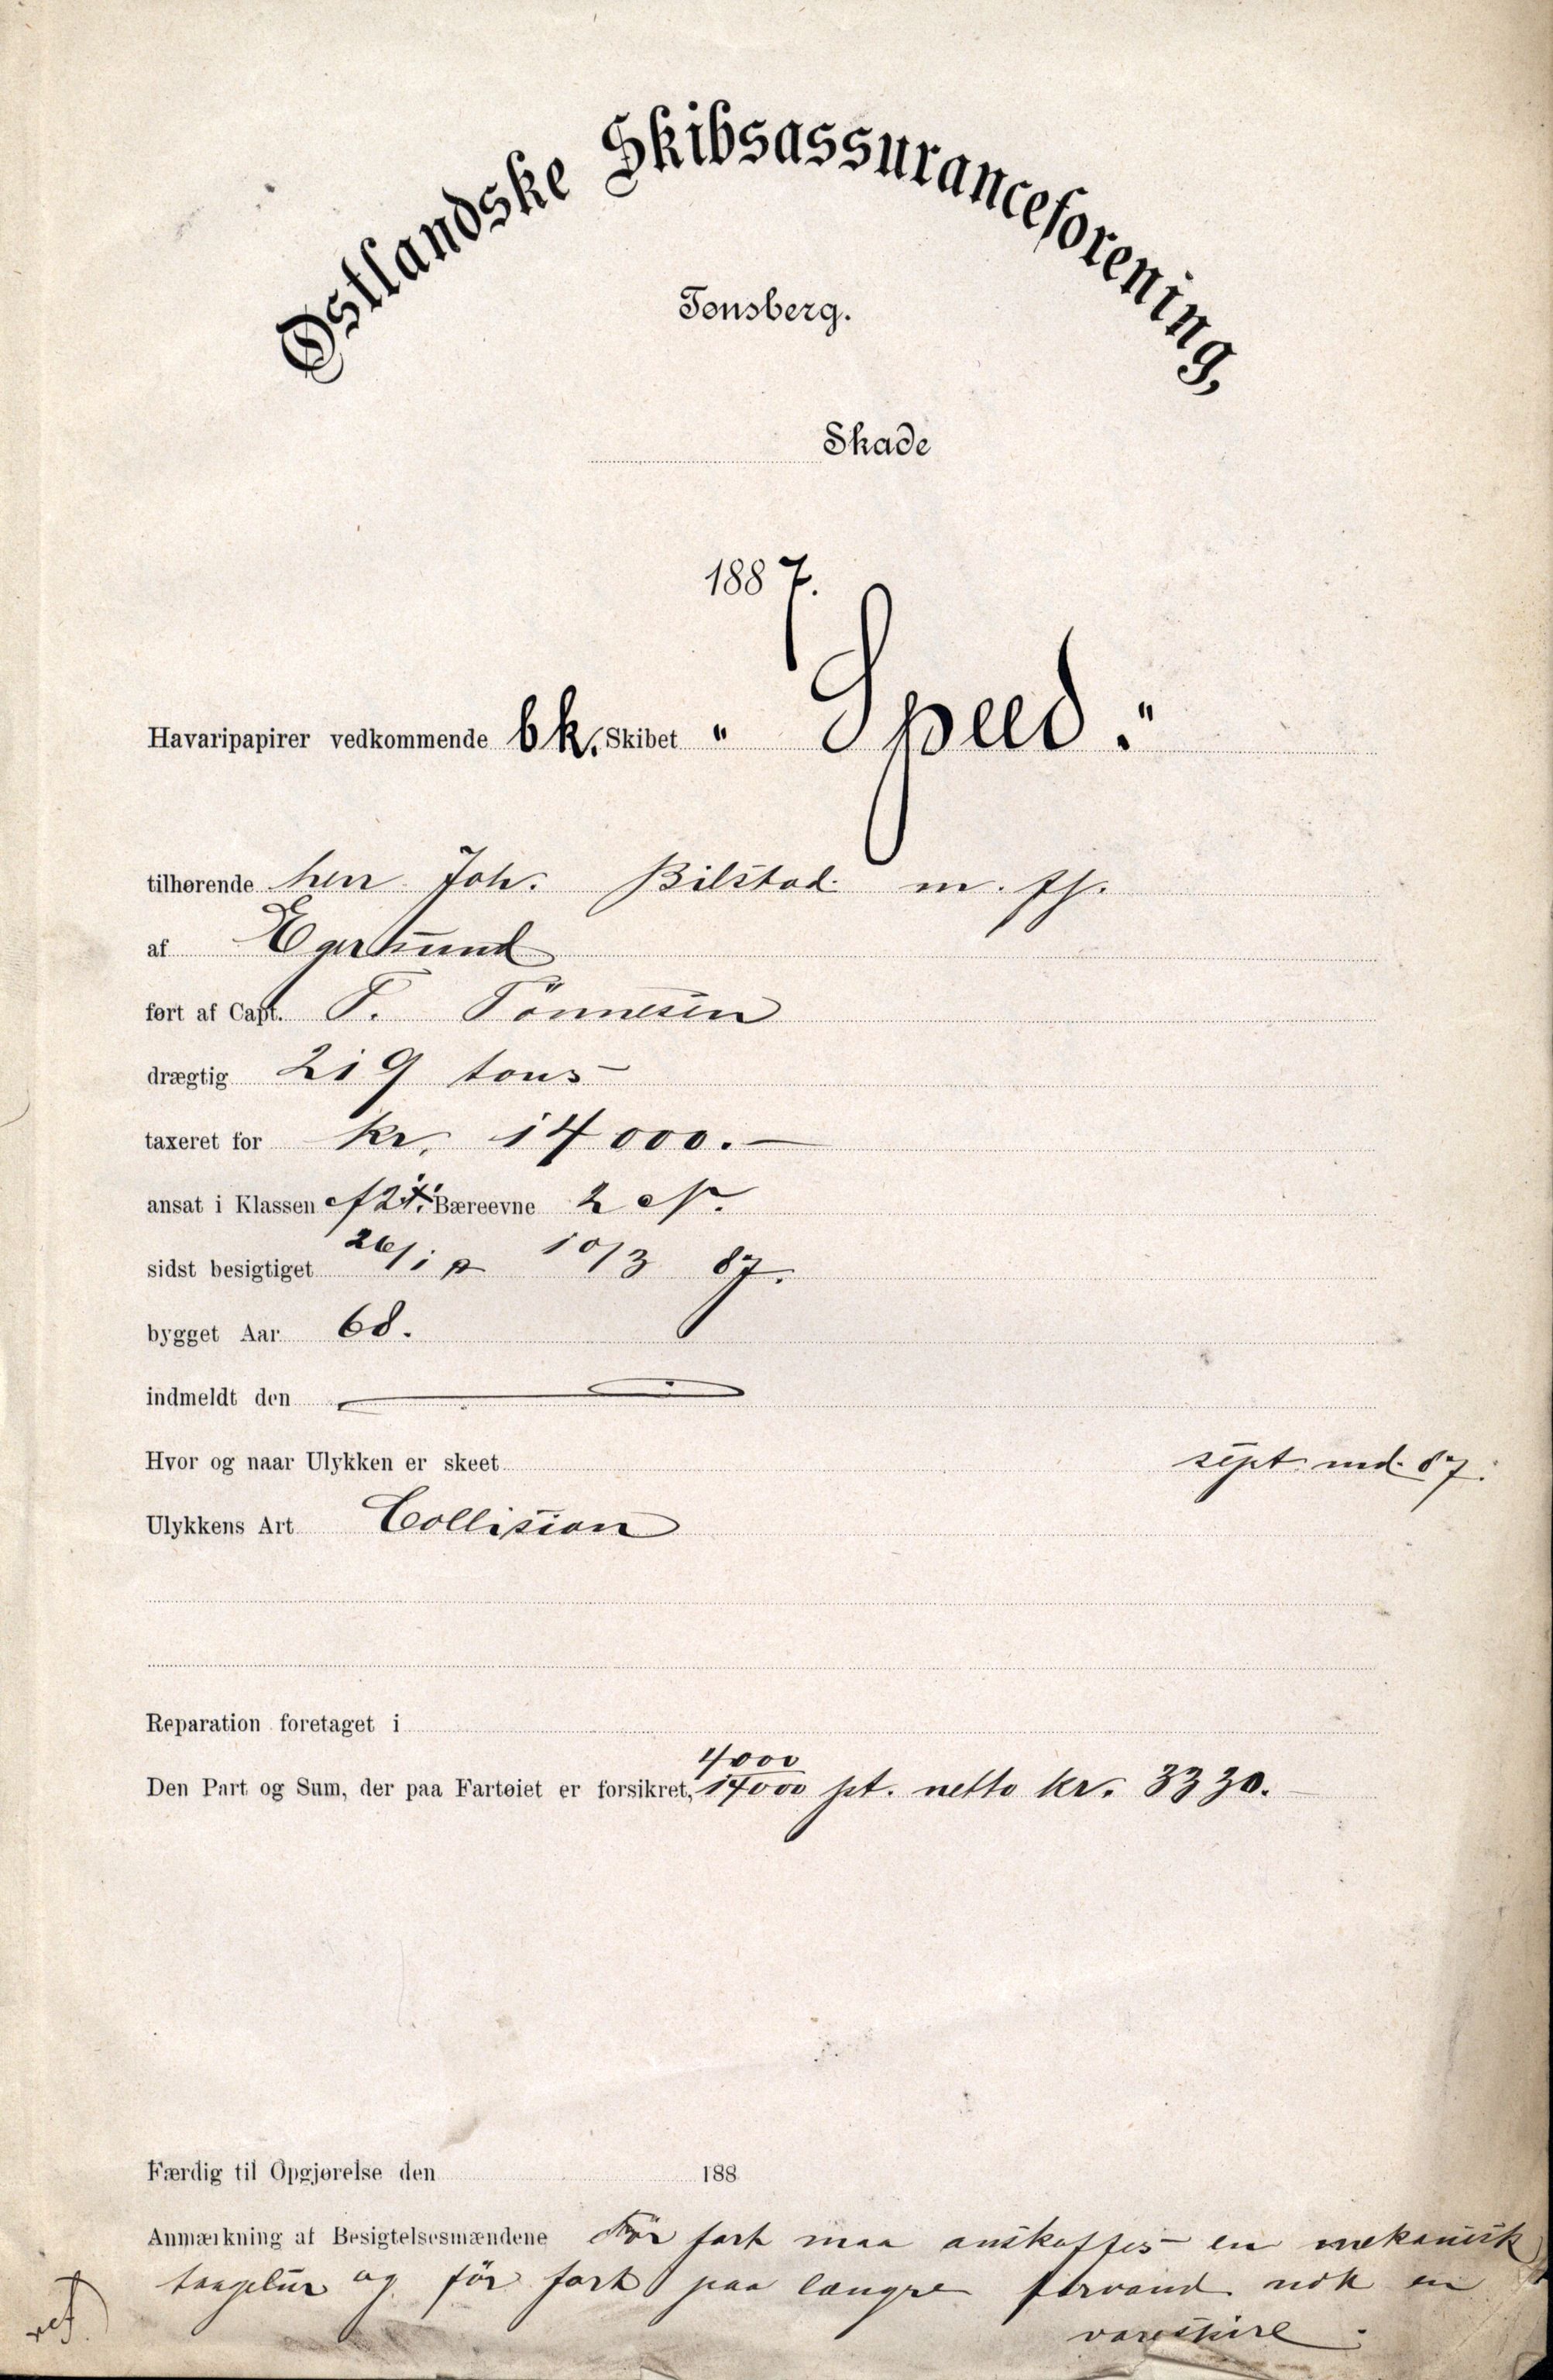 Østlandske Skibsassuranceforening,
Tønsberg.
Skade
1887.
Havaripapirer vedkommende bk. Skibet " Speed."
tilhørende herr Joh. Bilstad m. fl.
af Egersund
ført af Capt. T. Tönnesen
drægtig 219 tons
taxeret for kr. 14000.—
ansat i Klassen A2 Bæreevne 2
sidst besigtiget 26/1 10/3 87.
bygget Aar 68.
indmeldt den
Hvor og naar Ulykken er skeet sept. md. 87.
Ulykkens Art Collision
Reparation foretaget i
4000
Den Part og Sum, der paa Fartøiet er forsikret, 14000 pt. netto kr. 3330.—
Færdig til Opgjørelse den 188
Anmærkning af Besigtelsesmændene För fart maa anskaffes en mekanisk
taagelur og för fart paa længre farvand nok en
varespire.